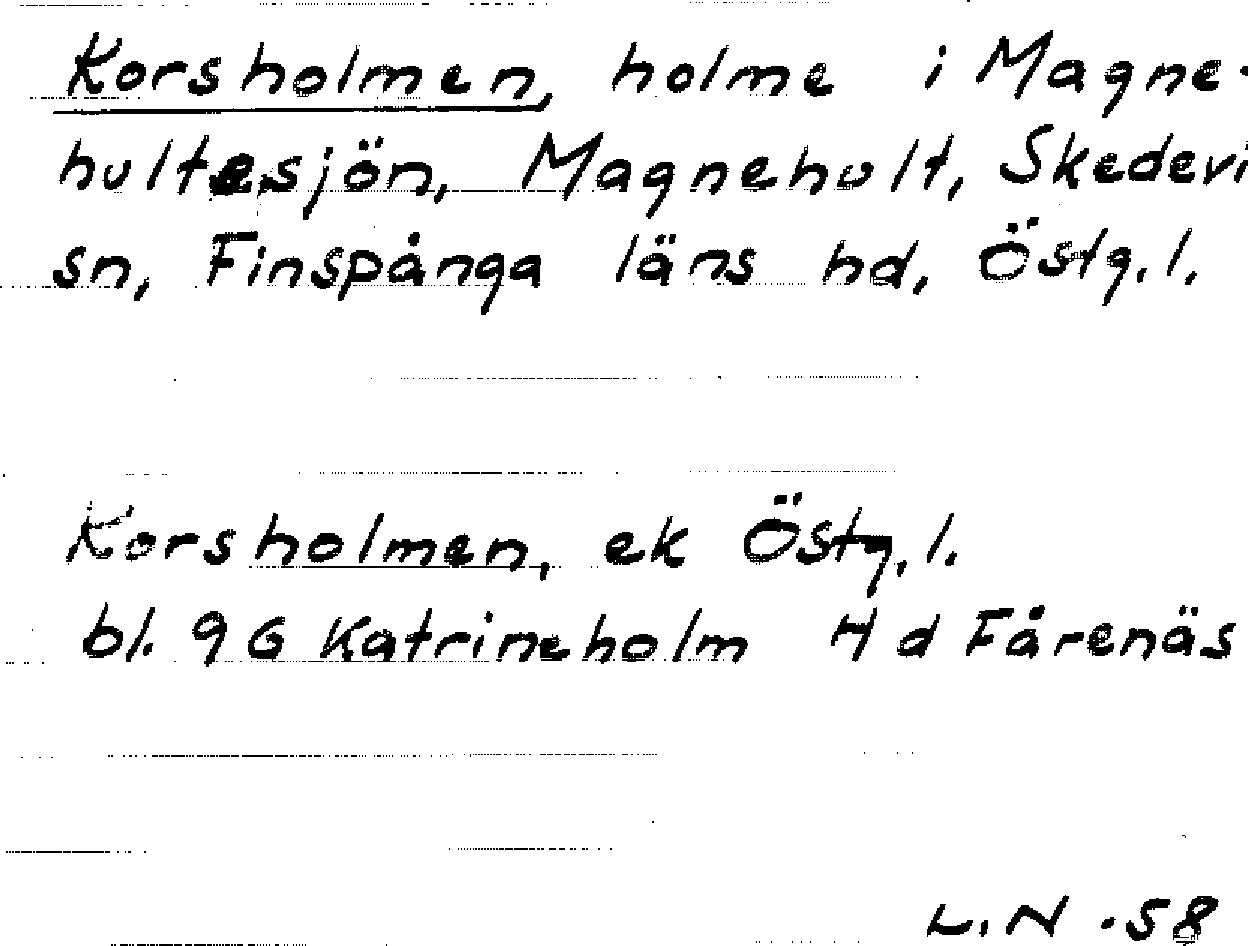 Korsholmen, holme i Magne-
hultesjön, Magnehult, Skedevi
sn, Finspånga läns hd, Östg. l.
Korsholmen, ek Östg. l.
bl. 9 G Katrineholm 4 d Fårenäs
L.N -58